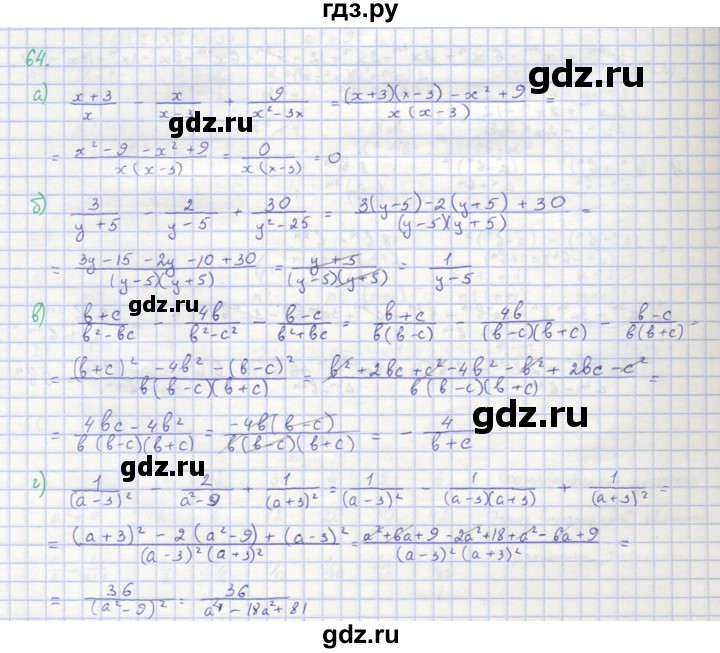 гдз.ру
64.
а) (x+3)/x − x/(x−3) + 9/(x²−3x) = ((x+3)(x−3) − x² + 9)/(x(x−3)) =
= (x²−9−x²+9)/(x(x−3)) = 0/(x(x−3)) = 0
gdz.ru
б) 3/(y+5) − 2/(y−5) + 30/(y²−25) = (3(y−5)−2(y+5)+30)/((y−5)(y+5)) =
gdz.ru
= (3y−15−2y−10+30)/((y−5)(y+5)) = (y+5)/((y−5)(y+5)) = 1/(y−5)
gdz.ru
в) (b+c)/(b²−bc) − 4b/(b²−c²) − (b−c)/(b²+bc) = (b+c)/(b(b−c)) − 4b/((b−c)(b+c)) − (b−c)/(b(b+c)) =
= ((b+c)²−4b²−(b−c)²)/(b(b−c)(b+c)) = (b²+2bc+c²−4b²−b²+2bc−c²)/(b(b−c)(b+c)) =
gdz.ru
= (4bc−4b²)/(b(b−c)(b+c)) = (−4b(b−c))/(b(b−c)(b+c)) = −4/(b+c)
г) 1/(a−3)² − 2/(a²−9) + 1/(a+3)² = 1/(a−3)² − 1/((a−3)(a+3)) + 1/(a+3)² =
gdz.ru
= ((a+3)²−2(a²−9)+(a−3)²)/((a−3)²(a+3)²) = (a²+6a+9−2a²+18+a²−6a+9)/((a−3)²(a+3)²) =
= 36/(a²−9)² = 36/(a⁴−18a²+81)
gdz.ru